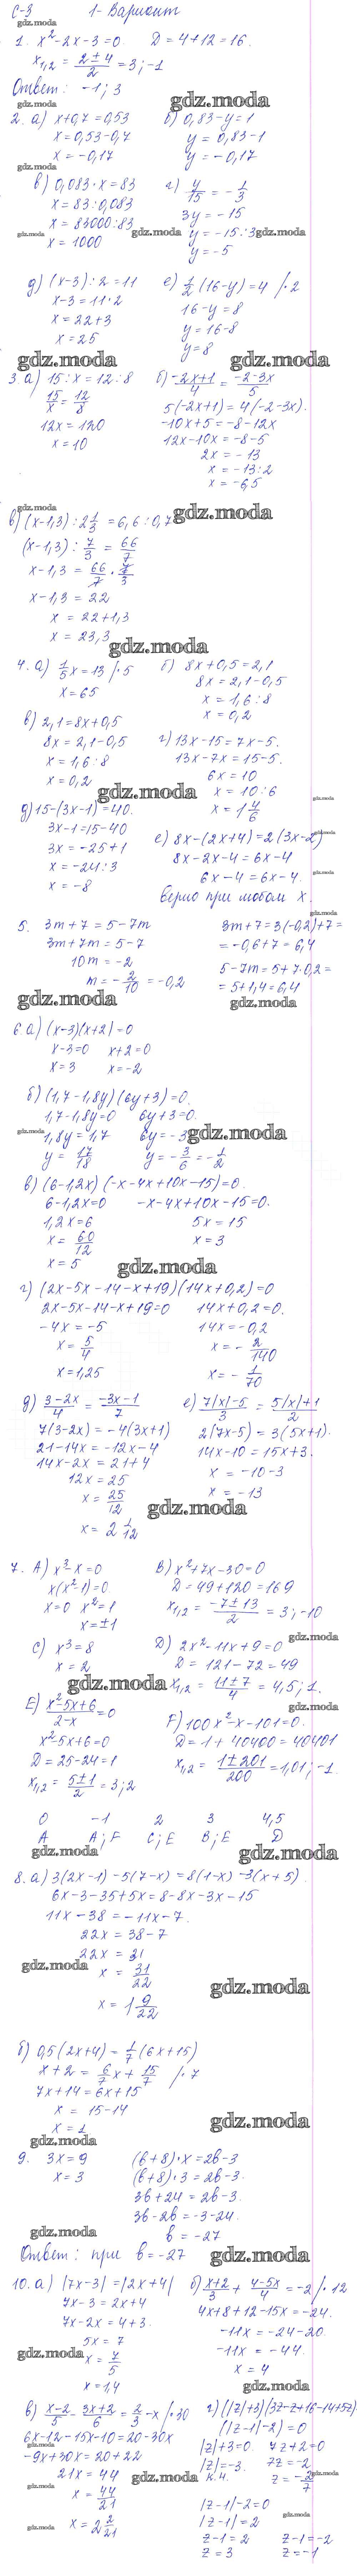 С-3 1-Вариант
1. x²-2x-3=0. D=4+12=16.
x₁,₂ = (2±4)/2 = 3; -1
Ответ: -1; 3
2. а) x+0,7=0,53
x=0,53-0,7
x=-0,17
б) 0,83-y=1
y=0,83-1
y=-0,17
в) 0,083·x=83
x=83:0,083
x=83000:83
x=1000
г) y/15 = -1/3
3y=-15
y=-15:3
y=-5
д) (x-3):2=11
x-3=11·2
x=22+3
x=25
е) 1/2(16-y)=4 /·2
16-y=8
y=16-8
y=8
3. а) 15:x=12:8
15/x = 12/8
12x=120
x=10
б) (-2x+1)/4 = (-2-3x)/5
5(-2x+1)=4(-2-3x).
-10x+5=-8-12x
12x-10x=-8-5
2x=-13
x=-13:2
x=-6,5
в) (x-1,3):2 1/3=6,6:0,7
(x-1,3):7/3 = 66/7
x-1,3 = 66/7·7/3
x-1,3=22
x=22+1,3
x=23,3
4. а) 1/5x=13 /·5
x=65
б) 8x+0,5=2,1
8x=2,1-0,5
x=1,6:8
x=0,2
в) 2,1=8x+0,5
8x=2,1-0,5
x=1,6:8
x=0,2
г) 13x-15=7x-5.
13x-7x=15-5.
6x=10
x=10:6
x=1 4/6
д) 15-(3x-1)=40.
3x-1=15-40
3x=-25+1
x=-24:3
x=-8
е) 8x-(2x+4)=2(3x-2)
8x-2x-4=6x-4
6x-4=6x-4.
Верно при любом x.
5. 3m+7=5-7m
3m+7m=5-7
10m=-2
m=-2/10=-0,2
3m+7=3(-0,2)+7=
=-0,6+7=6,4
5-7m=5+7·0,2=
=5+1,4=6,4
6. а) (x-3)(x+2)=0
x-3=0 x+2=0
x=3 x=-2
б) (1,7-1,8y)(6y+3)=0.
1,7-1,8y=0 6y+3=0.
1,8y=1,7 6y=-3
y=17/18 y=-3/6=-1/2
в) (6-1,2x)(-x-4x+10x-15)=0.
6-1,2x=0 -x-4x+10x-15=0.
1,2x=6 5x=15
x=60/12 x=3
x=5
г) (2x-5x-14-x+19)(14x+0,2)=0
2x-5x-14-x+19=0 14x+0,2=0.
-4x=-5 14x=-0,2
x=5/4 x=-2/140
x=1,25 x=-1/70
д) (3-2x)/4 = (-3x-1)/7
7(3-2x)=-4(3x+1)
21-14x=-12x-4
14x-2x=21+4
12x=25
x=25/12
x=2 1/12
е) (7|x|-5)/3 = (5|x|+1)/2
2(7x-5)=3(5x+1).
14x-10=15x+3.
x=-10-3
x=-13
7. A) x³-x=0
x(x²-1)=0
x=0 x²=1
x=±1
B) x²+7x-30=0
D=49+120=169
x₁,₂=(-7±13)/2=3; -10
C) x³=8
x=2
D) 2x²-11x+9=0
D=121-72=49
x₁,₂=(11±7)/4=4,5; 1.
E) (x²-5x+6)/(2-x)=0
x²-5x+6=0
D=25-24=1
x₁,₂=(5±1)/2=3; 2
F) 100x²-x-101=0.
D=1+40400=40401
x₁,₂=(1±201)/200=1,01; -1.
0 -1 2 3 4,5
A A;F C;E B;E D
8. а) 3(2x-1)-5(7-x)=8(1-x)-3(x+5).
6x-3-35+5x=8-8x-3x-15
11x-38=-11x-7.
22x=38-7
22x=31
x=31/22
x=1 9/22
б) 0,5(2x+4)=1/7(6x+15)
x+2=6/7x+15/7 /·7
7x+14=6x+15
x=15-14
x=1
9. 3x=9
x=3
(b+8)·x=2b-3
(b+8)·3=2b-3.
3b+24=2b-3.
3b-2b=-3-24.
b=-27
Ответ: при b=-27
10. а) |7x-3|=|2x+4|
7x-3=2x+4
7x-2x=4+3.
5x=7
x=7/5
x=1,4
б) (x+2)/3+(4-5x)/4=-2 /·12
4x+8+12-15x=-24.
-11x=-24-20.
-11x=-44.
x=4
в) (x-2)/5-(3x+2)/6=2/3-x /·30
6x-12-15x-10=20-30x
-9x+30x=20+22
21x=44
x=44/21
x=2 2/21
г) (|z|+3)(3z-z+16-14+5z).
(|z-1|-2)=0
|z|+3=0. 7z+2=0
|z|=-3. 7z=-2
к.н. z=-2/7
|z-1|-2=0
|z-1|=2
z-1=2 z-1=-2
z=3 z=-1
gdz.moda